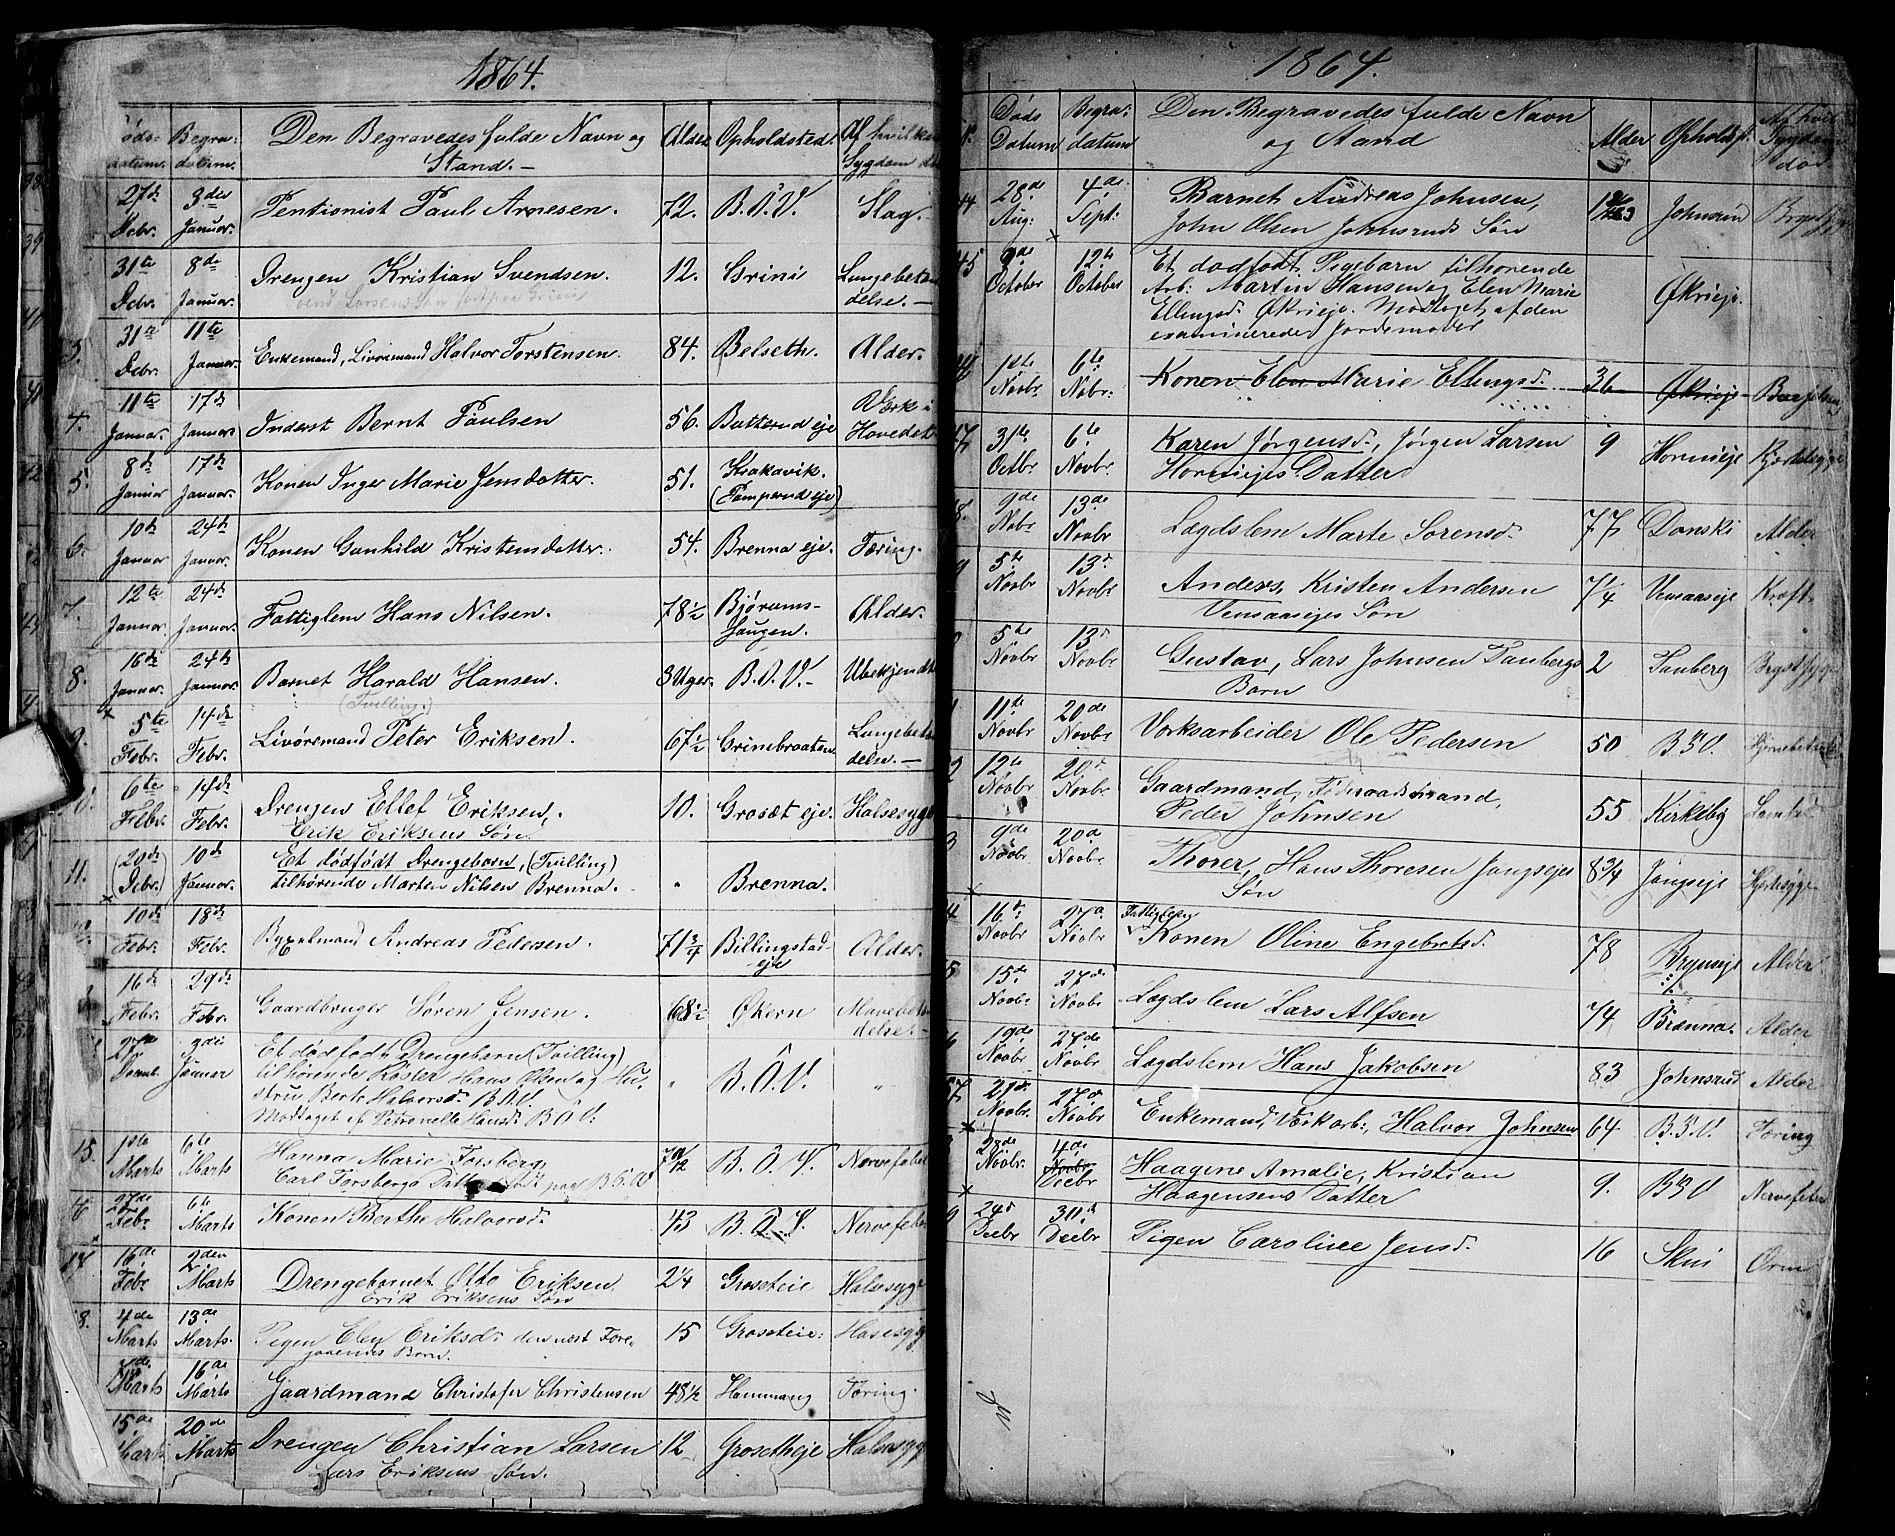 1864.
Døds-datum. Begra: datum. Den Begravedes fulde Navn og Stand.- Alder Opholdsted. Af hvilken Sygdom død
27de Dcbr. 3die Januar. Pentionist Paul Arnesen. 72. B.Ö.V. Slag.
31te Dcbr. 8de Januar. Drengen Kristian Svendsen. 12. Grini Lungebetæn
delse.-
3. 31te Dcbr. 11te Januar. Enkemand, Livøremand Halvor Torstensen. 84. Belseth. Alder.
4. 11te Januar. 17de Januar. Inderst Bernt Paulsen 56. Butterud eje Værk i
Hovedet
5. 8de Januar 17de Januar. Konen Inger Marie Jensdatter. 51. Krakavik.
(Pamperud eje)
6. 10de Januar 24de Januar. Konen Gunhild Kristensdatter. 54. Brenna eje. Tæring.
7. 12te Januar. 24de Januar. Fattiglem Hans Nilsen. 78½ Bjørums-
haugen. Alder.
8. 16de Januar. 24de Januar. Barnet Harald Hansen. 3 Uger. B.Ö.V. Ubekjendt
(Tvilling.)
9. 5te Febr. 14de Febr. Livøremand Peter Eriksen. 67½ Grinibraaten. Lungebetæn
delse.-
10. 6te Febr. 14de Febr. Drengen Ellef Eriksen, 10. Grosæt eje. Halsesyge
Erik Eriksens Søn
11. (20de Dcbr.) 10de Januar. Et dødfødt Drengebarn, (Tvilling)
tilhørende Marten Nilsen Brenna. " Brenna.
10de Febr. 18de Febr. Byxelmand Andreas Pedersen. 71¾ Billingstad-
eje Alder.
16de Febr. 29de Febr. Gaardbruger Søren Jensen. 68½ Økern Mavebetæn
delse.-
27de Decmbr. 9de Januar Et dødfødt Drengebarn (Tvilling)
tilhørende Røster Hans Olsen og Hu-
stru Berte Halvorsd. B.Ö.V. " B.Ö.V. "
Modtaget af Petronelle Hansd. B.Ö.V.
15. 1ste Marts 6te Marts Hanna Marie Forsberg, 7 11/12 B.Ö.V. Nervefeber
Carl Forsbergs Datter paa B.Ö.V
6 27de Febr. 6te Marts Konen Berthe Halvorsd. 43 B.Ö.V. Nervefeber
17 16de Febr. 2den Marts Drengebarnet Otto Eriksen 2¼ Groseteie Halsesyge
Erik Eriksens Søn
8. 4de Marts 13de Marts. Pigen Elen Eriksd. den næst Fore- 15 Groseteie: Halsesyg
gaaendes Barn.
Marts 16de Marts Gaardmand Christofer Christensen 48½ Hammang Tæring.
15de Marts 20de Marts Drengen Christian Larsen 12 Grosetheje Halsesyg
Lars Eriksens Søn.
1864.
Døds Datum Begra: datum Den Begravedes fulde Navn
og Stand Alder Opholdst. Af hvi
Sygdom
død
44 28de Aug: 4de Sept: Barnet Andreas Johnsen,
John Olsen Johnsruds Søn Johnsrud
45 9de October 12te October Et dødfødt Pigebarn tilhørende
Arb: Martin Hansen og Elen Marie
Ellingsd. Økrieje. Modtaget af den Økrieje.
examinerede Jordemoder
46 1ste Novbr 6te Nobr. Konen Elen Marie Ellingsd. 36 Økrieje Barselseng
47 31te Octbr. 6te Novbr. Karen Jørgensd., Jørgen Larsen 9 Hornieje
Horniejes Datter
8. 9de Nobr 13de Novbr Lægdslem Marte Sørensd. 77 Donski Alder
9 5te Novbr 13de Novbr. Anders, Kristen Andersen 7/4 Vensaaseje Kræft
Vensaasejes Søn
0 5te Novbr 13de Novbr. Gustav, Lars Johnsen Tanbergs 2 Tanberg Brystsyge
Barn
1 11te Novbr 20de Novbr. Værksarbeider Ole Pedersen 50 B.Ö.V. Hjernebetæn
2 12te Novbr. 20de Novbr. Gaardmand, Føderaadsmand,
Peder Johnsen 55 Kirkeby
3 9de Novbr 20de Novbr. Thorer, Hans Thoresen Jongsejes 8¾ Jongseje Hjertesyge
Søn
4 16de Novbr. 27de Novbr Fattiglem
Konen Oline Engebretsd. 78 Brynseje Alder
5 15de Novbr. 27de Novbr. Lægdslem Lars Alfsen 74 Brænna. Alder
6 19de Novbr. 27de Novbr Lægdslem Hans Jakobsen 83 Johnsrud Alder
57 21de Novbr. 27de Novbr Enkemand, Værkarb:, Halvor Johnsen 64. B.Ö.V. Tæring
28de Novbr. 4de Novbr
Decbr Haagine Amalie, Kristian 9. B.Ö.V. Nervefeber
Haagensens Datter
9 24de Decbr 30de Decbr Pigen Caroline Jensd. 16 Skui Orm